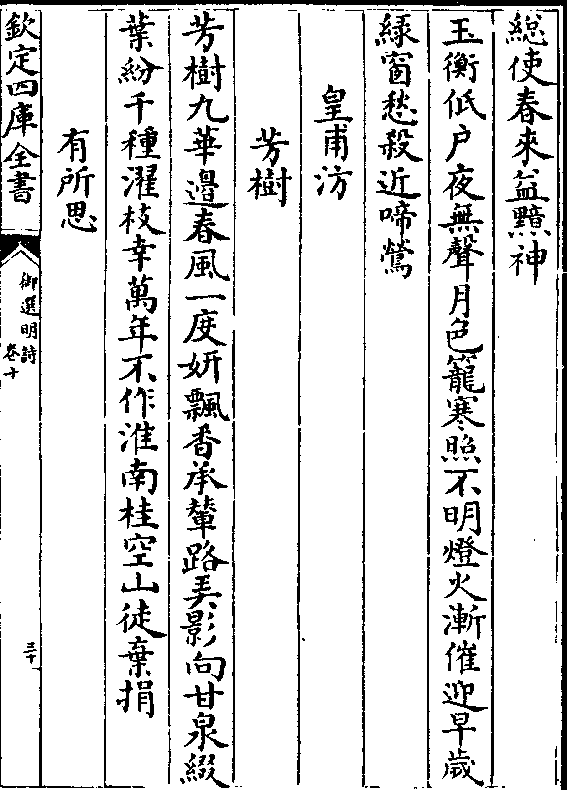 縂使春來益黯神
玉衡低户夜無聲月色籠寒照不明燈火漸催迎早歲
綠窗愁殺近啼鶯
皇甫汸
芳樹
芳樹九華邉春風一度妍飄香承輦路弄影向甘泉綴
葉紛千種濯枝幸萬年不作淮南桂空山徒棄捐
有所思
欽定四庫全書
御選明詩
卷十
三十